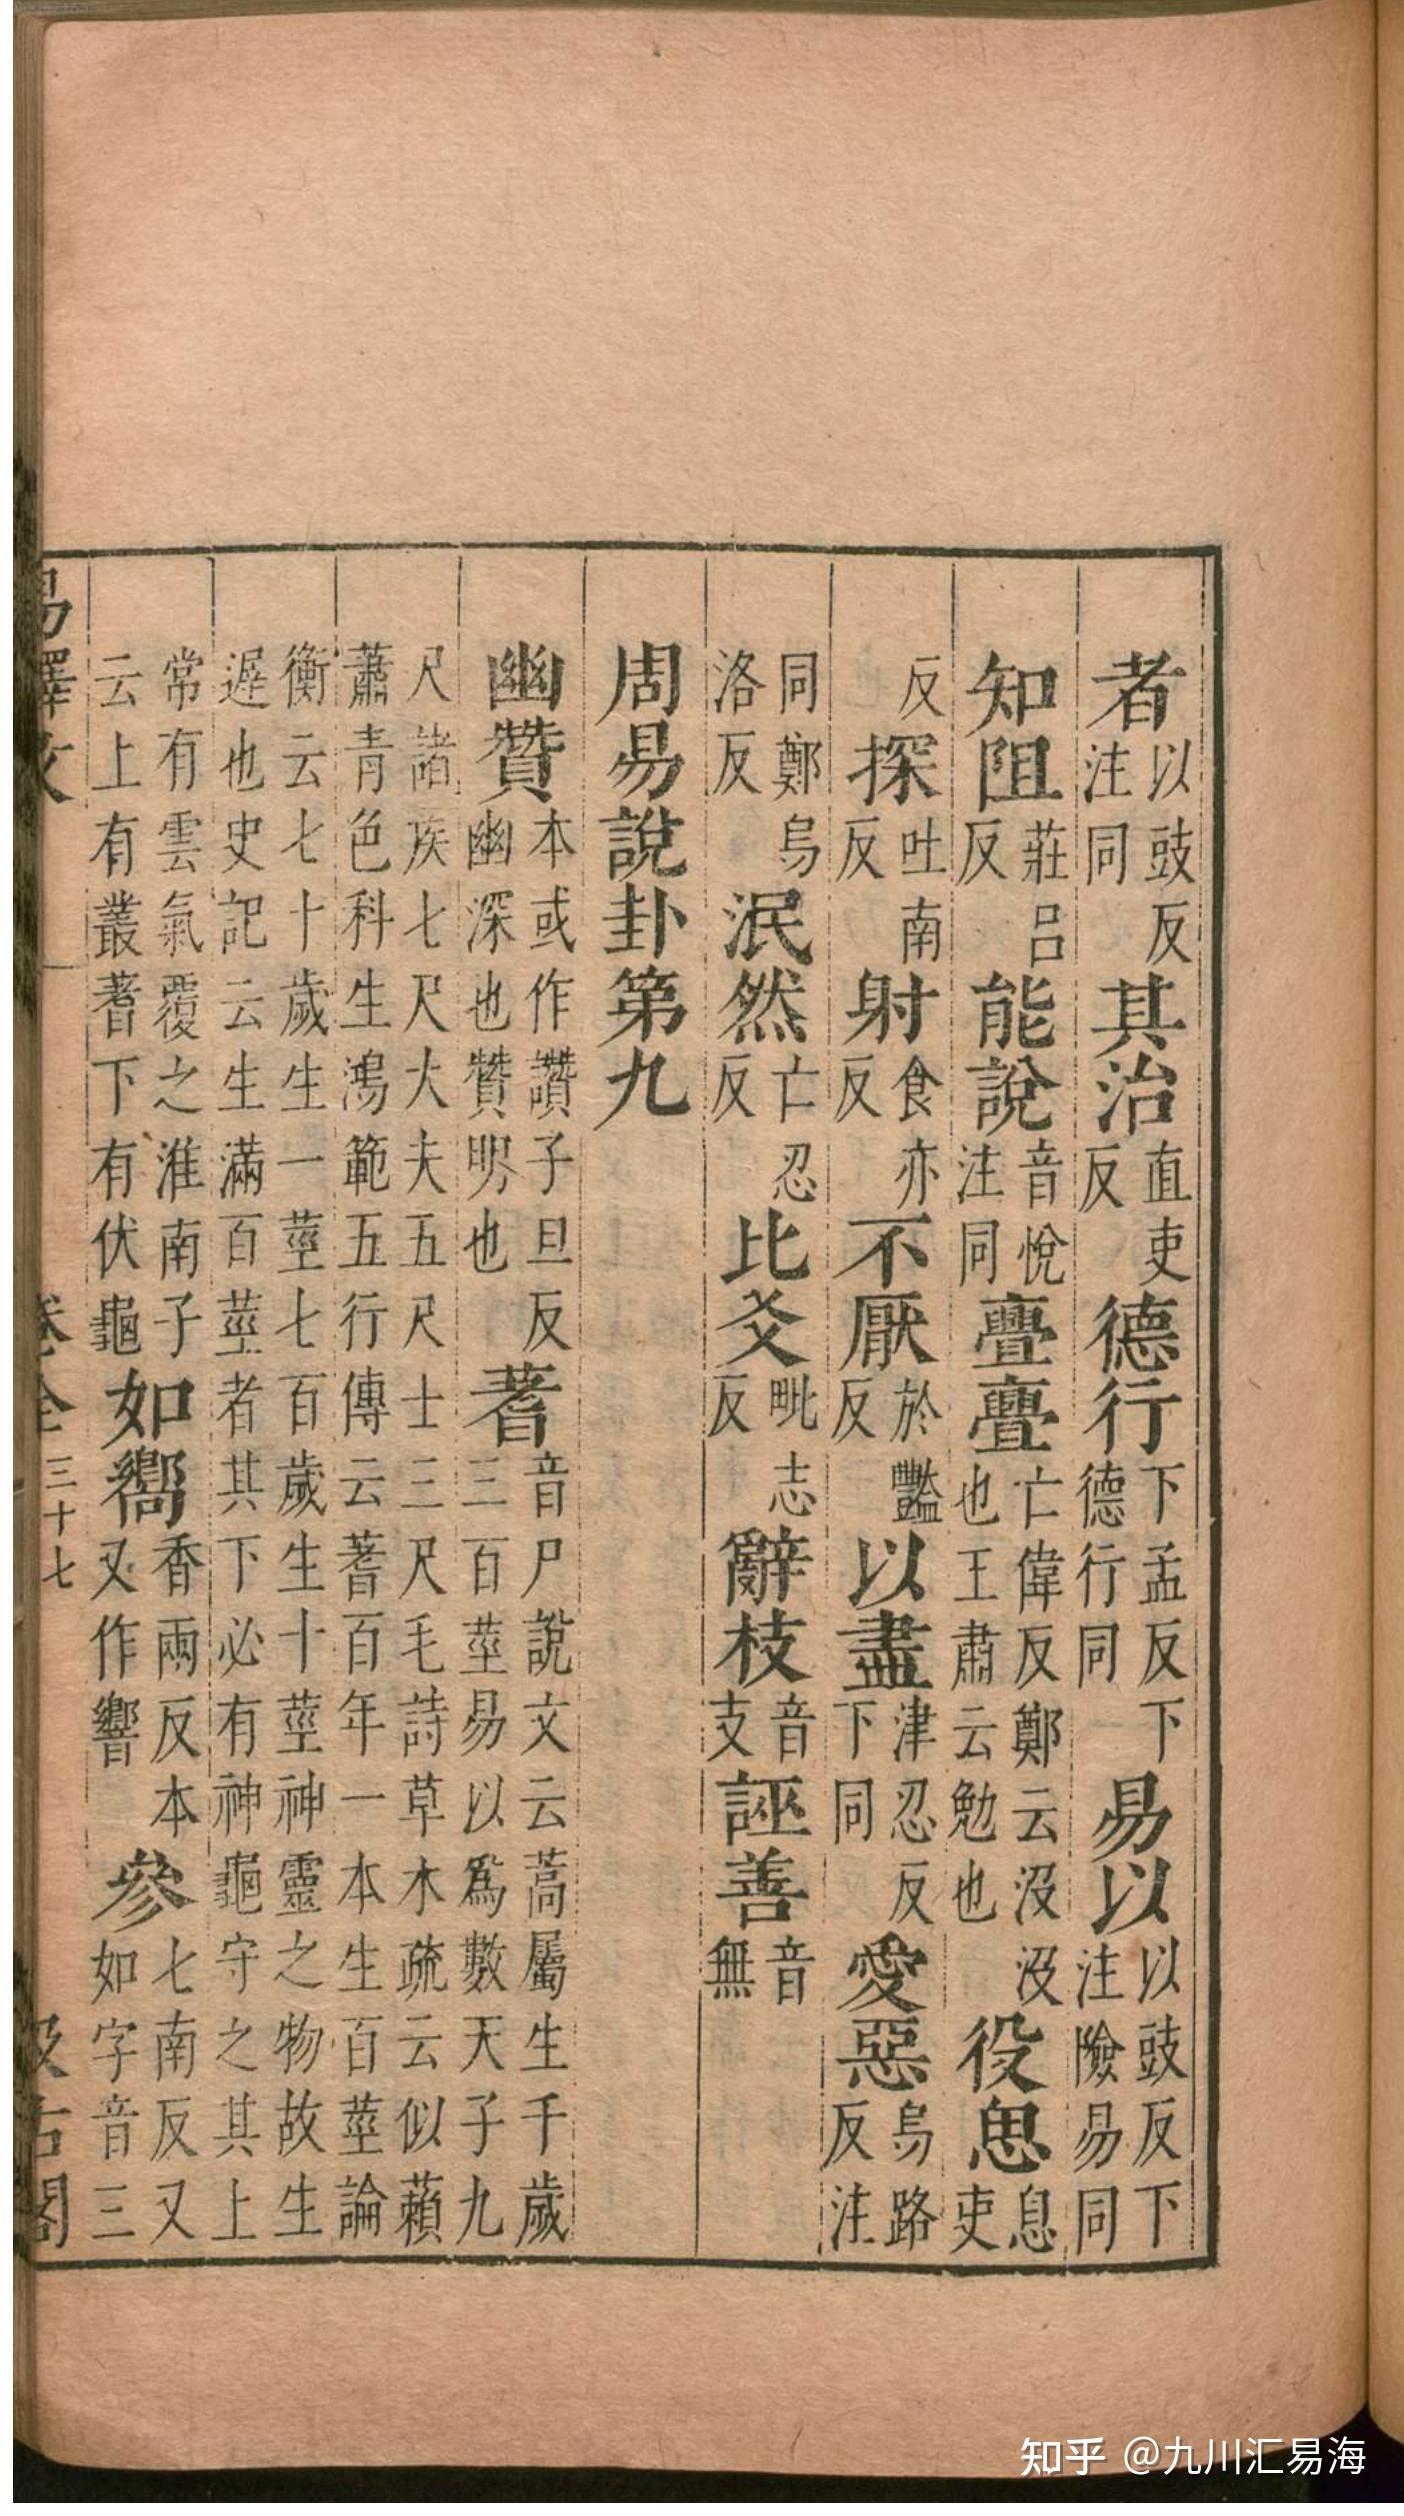 者以豉反注同其治直吏反德行下孟反下德行同易以以豉反下注險易同
知阻莊呂反能說音悅注同亹亹亡偉反鄭云沒沒也王肅云勉也役思息吏
反探吐南反射食亦反不厭於豔反以盡津忍反下同愛惡烏路反注
同鄭烏洛反泯然亡忍反比爻毗志反辭枝音支誣善音無
周易說卦第九
幽贊本或作讚子旦反幽深也贊明也蓍音尸說文云蒿屬生千歲三百莖易以爲數天子九
尺諸侯七尺大夫五尺士三尺毛詩草木疏云似藾蕭青色科生鴻範五行傳云蓍百年一本生百莖論
衡云七十歲生一莖七百歲生十莖神靈之物故生遲也史記云生滿百莖者其下必有神龜守之其上
常有雲氣覆之淮南子云上有叢蓍下有伏龜如嚮香兩反本又作響參七南反又如字音三
易釋文 卷全 三十七 汲古閣
知乎 @九川汇易海